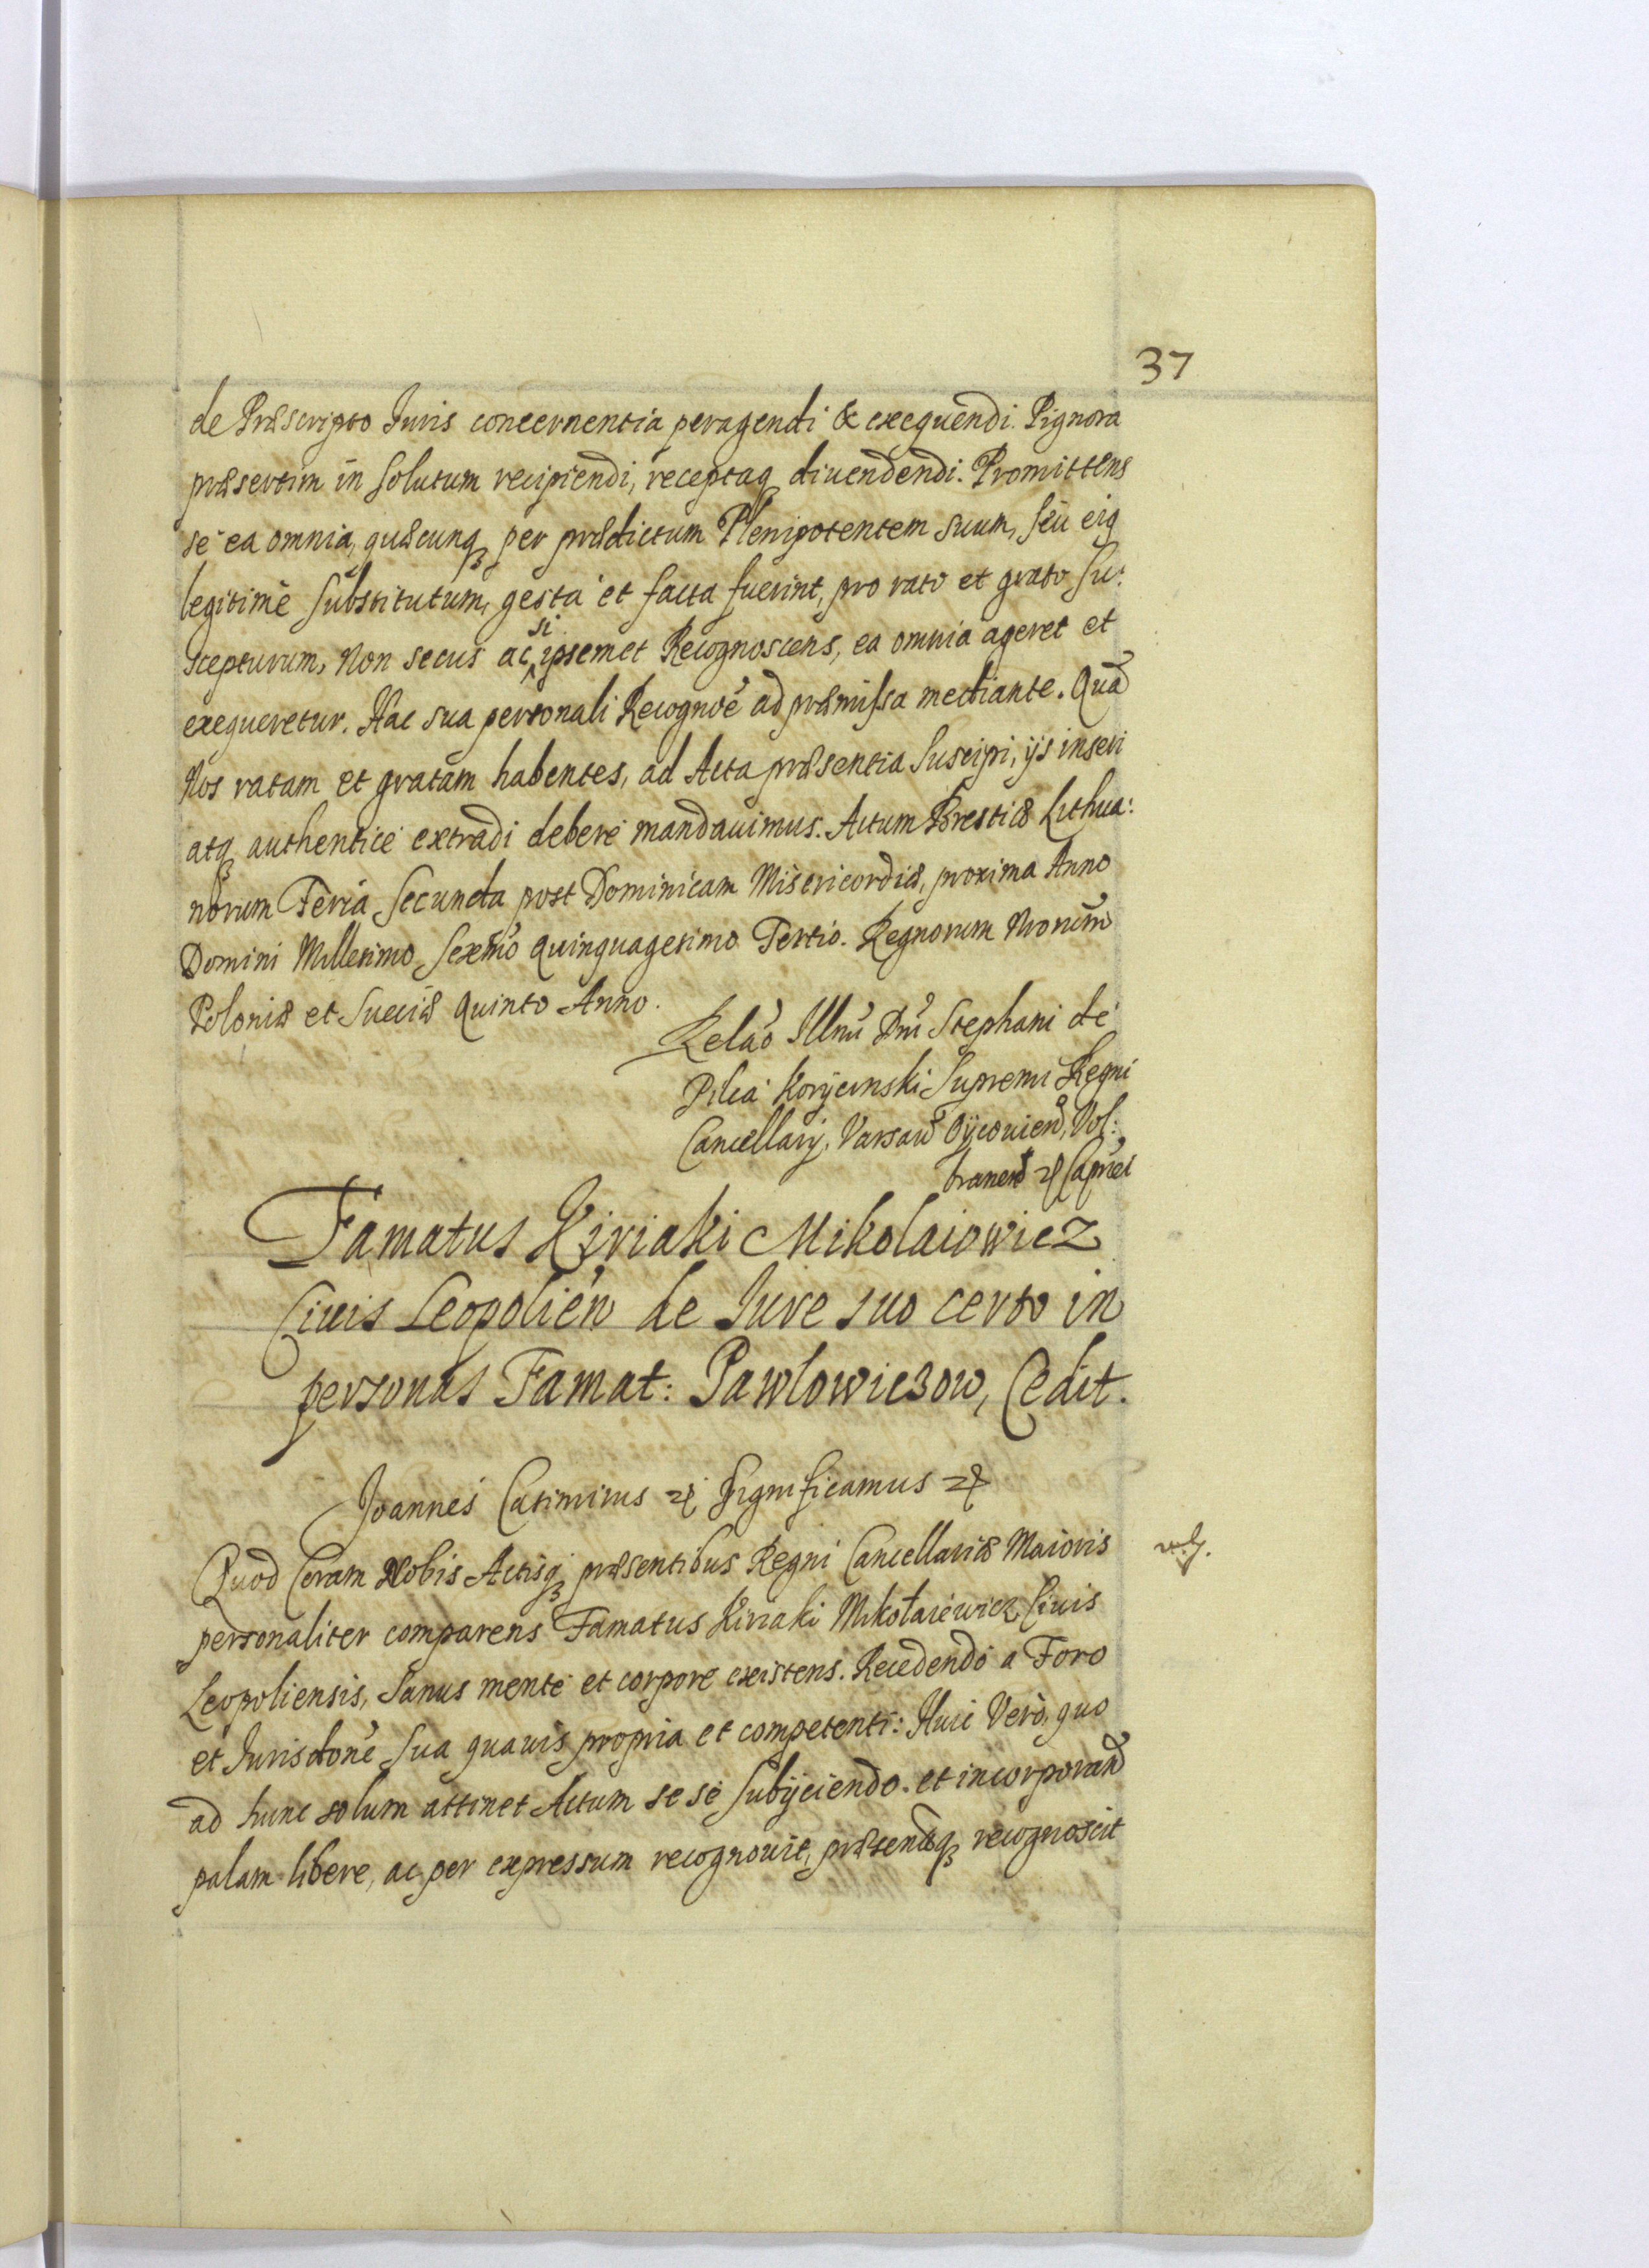 37
de Præscripto Iuris concernentia peragendi & exequendi. Pignora
præsertim in solutum recipiendi, receptaq diuendendi. Promittens
se ea omnia, quæcunq per prædictum Plenipotentem suum, seu eiq
legitime substitutum, gesta et facta fuerint, pro rato et grato su:
scepturum, Non secus ac si ipsemet Recognoscens, ea omnia ageret et
exequeretur. Hac sua personali Recognoe ad præmissa mediante. Qua
Nos ratam et gratam habentes, ad Acta præsentia Suscipi, ijs inseri
atq authentice extradi debere mandauimus. Actum Brestiæ Lithua:
norum Feria Secunda post Dominicam Misericordiæ, proxima Anno
Domini Millesimo Sexmo quinquagesimo Tertio. Regnorum Nrorum
Poloniæ et Sueciæ quinto Anno.
Relao Illmi Dni Stephani de
Pilca Koryciinski Supremi Regni
Cancellarij, Varsau Oijcouien, Vol:
branen &c Capnei
Famatus Kiriaki Mikolaiowicz
Ciuis Leopolien de Iure suo certo in
personas Famat: Pawlowiczow, Cedit.
Joannes Casimirus &c Significamus &c
Quod Coram Nobis Actisq præsentibus Regni Cancellariæ Maioris
personaliter comparens Famatus Kiriaki Mikołaiewicz Ciuis
Leopoliensis, Sanus mente et corpore existens. Recedendo a Foro
et Jurisdone sua quauis propria et competenti: Huic Vero, quo
ad hunc solum attinet Actum se se subijciendo. et incorporand
palam libere, ac per expressum recognouit, præsentibq recognoscit